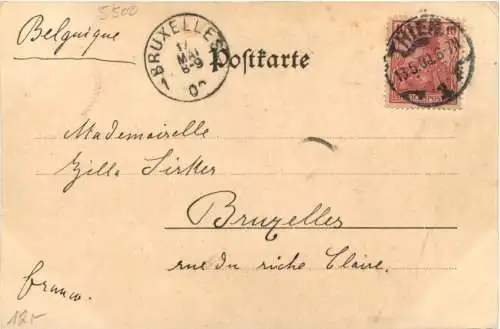 5500
Belgique
1 BRUXELLES
17
MAI
8-9
00
Postkarte
TRIER
Mademoiselle
Zilla Sirker
Bruxelles
rue du riche Claire.
franco.
12-